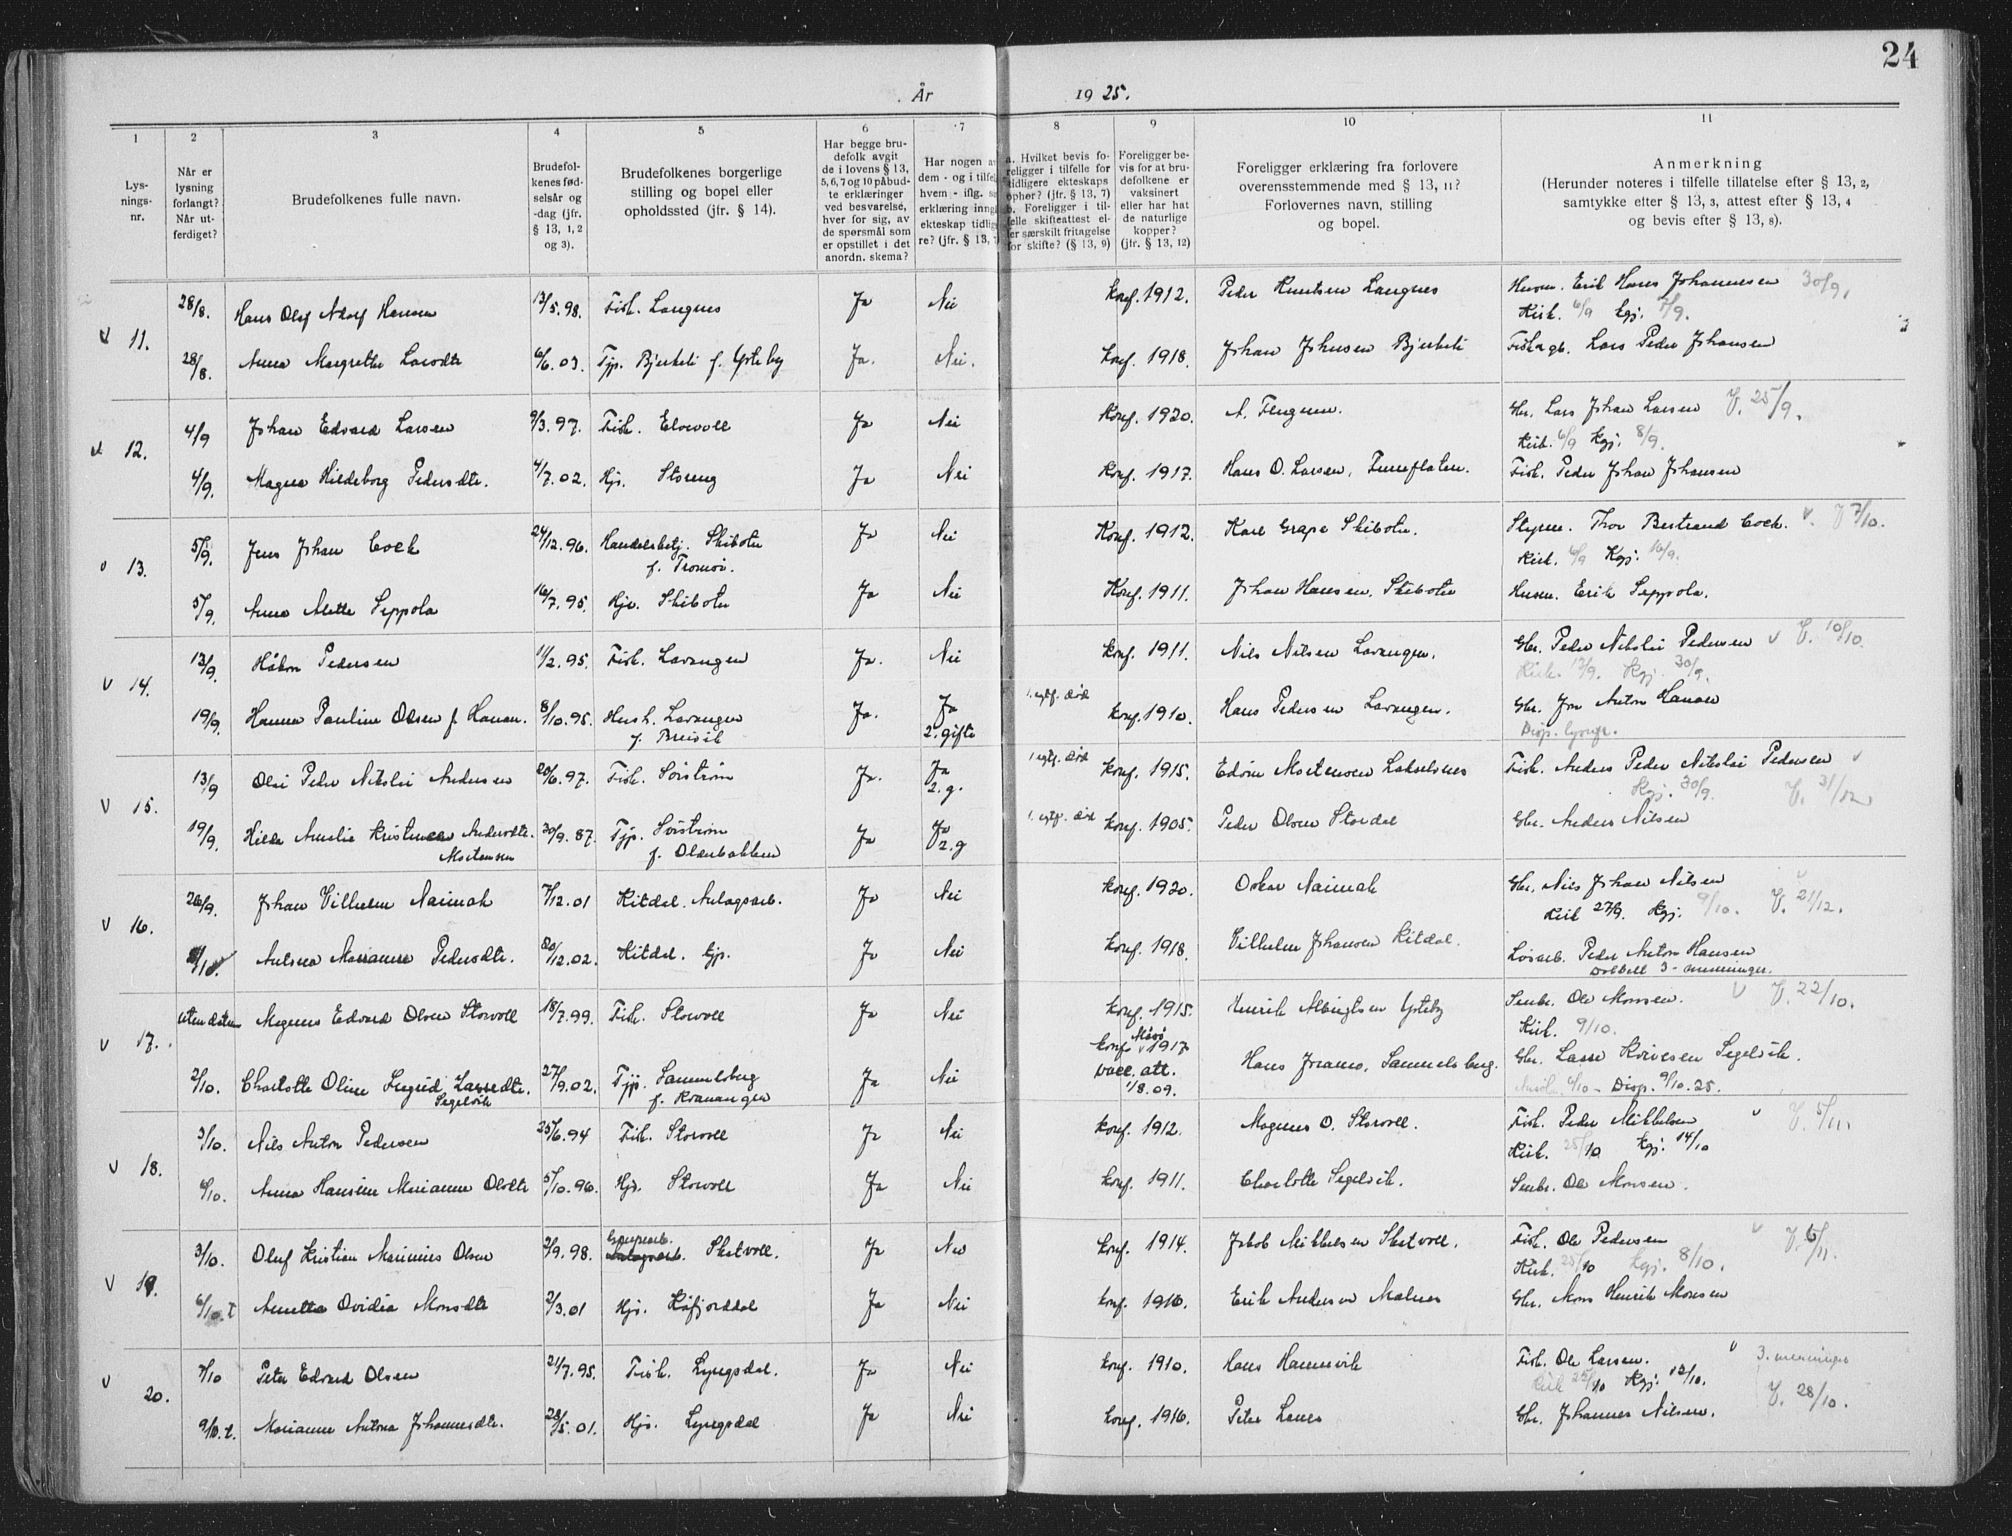 24
År 1925.
1 2 3 4 5 6 7 8 9 10 11
Lysningsnr.
Når er lysning forlangt? Når utferdiget?
Brudefolkenes fulle navn.
Brudefolkenes fødselsår og -dag (jfr. § 13, 1, 2 og 3).
Brudefolkenes borgerlige stilling og bopel eller opholdssted (jfr. § 14).
Har begge brudefolk avgit de i lovens § 13, 5, 6, 7 og 10 påbudte erklæringer ved besvarelse, hver for sig, av de spørsmål som er opstillet i det anordn. skema?
Har nogen av dem - og i tilfelle hvem - iflg. erklæring inngått ekteskap tidligere? (jfr. § 13, 7)
a. Hvilket bevis foreligger i tilfelle for tidligere ekteskaps ophør? (jfr. § 13, 7) b. Foreligger i tilfelle skifteattest eller særskilt fritagelse for skifte? (§ 13, 9)
Foreligger bevis for at brudefolkene er vaksinert eller har hat de naturlige kopper? (jfr. § 13, 12)
Foreligger erklæring fra forlovere overensstemmende med § 13, 11? Forlovernes navn, stilling og bopel.
Anmerkning (Herunder noteres i tilfelle tillatelse efter § 13, 2, samtykke efter § 13, 3, attest efter § 13, 4 og bevis efter § 13, 8).
11. 28/8. Hans Olaf Adolf Hansen 13/5.98. Fisk. Langnes Ja Nei konf. 1912. Peder Knutsen Langnes Husm. Erik Hans Johannesen 30/9.
Kirk. 6/9 kgj. 7/9.
28/8. Anna Margrethe Larsdtr 6/6.03. Tjp. Bjerkli f. Ysteby Ja. Nei. konf. 1918. Johan Johnsen Bjerkli Lars Peder Johansen
12. 4/9 Johan Edvard Larsen 9/3.97. Fisk. Elvevoll Ja Nei konf. 1920. Gbr. Lars Johan Larsen V. 25/9.
Kirk. 6/9 kgj. 8/9.
4/9. Magna Hildeborg Pedersdtr. 4/7.02. Hjs. Storeng Ja Nei konf. 1917. Hans O. Larsen, Furuflaten. Fisk. Peder Johan Johansen
13. 5/9. Jens Johan Cock 24/12.96. Handelsbetj. Skibotn Ja Nei Konf. 1912. Karl Grape Skibotn. Styrm. Thor Bertrand Cock. V 7/10.
f. Tromsø. Kirk. 6/9 Kgj. 16/9.
5/9. Anna Mette Seppola 16/7.95. Hjs. Skibotn Ja Nei Konf. 1911. Johan Hansen. Skibotn Husm. Erik Seppola.
14. 13/9. Håkon Pedersen 11/2.95. Fisk. Lavangen Ja. Nei konf. 1911. Nils Nilsen Lavangen. Gbr. Peder Nikolai Pedersen V. 10/10.
Kirk. 13/9. Kgj. 30/9.
19/9. Hanna Pauline Olsen f. Hanan. 8/10.95. Hush. Lavangen Ja. Ja konf. 1910. Hans Pedersen Lavangen. Gbr. Jon Anton Hanan
f. Breivik 2. gifte Disp. lysn.
15. 13/9 Oluf Peder Nikolai Andersen 20/6.97. Fisk. Sørstrøm Ja. Ja 2. g. konf. 1915. Edvin Mortensen Lakselvnes Fisk. Anders Peder Nikolai Pedersen
Kgj. 30/9. V. 31/10
19/9. Hilda Amalie Kristine Andersdtr. 30/9.87. Tjp. Sørstrøm Ja Ja 2. g konf. 1905. Peder Olsen Stordal Gbr. Anders Nilsen
Mortensen f. Olderbakken
16. 26/9. Johan Vilhelm Naimak 7/12.01 Kitdal. Anlagsarb. Ja Nei konf. 1920. Oskar Naimak Gbr. Nils Johan Nilsen
Kirk 27/9. Kgj. 9/10. V. 21/12.
Antona Marianne Pedersdtr. 30/12.02. Kitdal. tjp. Ja Nei konf. 1918. Vilhelm Johansen Kitdal. Løsarb. Peder Anton Hansen
Dobbelt 3-menninger.
17. uten datum Magnus Edvard Olsen Storvoll 18/7.99. Fisk. Storvoll Ja Nei konf. 1915. Henrik Albrigtsen Ysteby Ole Monsen. V. 22/10.
Kirk. 9/10.
2/10. Charlotte Oline Ingrid Larsdtr. 27/9.02. Tjp. Sammelsberg Ja Nei konf. 1917 Hans Jensen, Sammelsberg. Gbr. Lasse Iversen Segelvik.
Segelvik f. Kvænangen vacc. att. 1/8.09. Disp. 9/10.25.
18. 3/10. Nils Anton Pedersen 25/6.94 Fisk. Storvoll Ja Nei konf. 1912. Magnus O. Storvoll. Fisk. Peder Mikkelsen V. 5/11
Kirk. 25/10 kgj. 14/10
6/10. Anna Hansine Marianne Olsdtr 5/10.96. Hjs. Storvoll Ja Nei konf. 1911. Charlotte Segelvik. Ole Monsen.
19. 3/10. Oluf Kristian Marinius Olsen 2/9.98. Skatvoll. Ja Nei konf. 1914. Jakob Mikkelsen Skatvoll. Fisk. Ole Pedersen V. 6/11.
Kirk. 25/10 kgj. 8/10.
6/10. Anetta Ovidia Monsdtr 2/3.01 Hjs. Kåfjorddal Ja Nei konf. 1916. Erik Andersen Malnes Gbr. Mons Henrik Monsen
20. 7/10 Peter Edvard Olsen 21/7.95. Fisk. Lyngsdal. Ja Nei konf. 1910. Hans Hamnvik Fisk. Ole Larsen. 3. menninger
Kirk 25/10 Kgj. 12/10. V. 28/10.
9/10. Marianne Antona Johannesdtr. 28/5.01. Hjs. Lyngsdal Ja Nei konf. 1916. Peter Lanes Gbr. Johannes Nilsen.